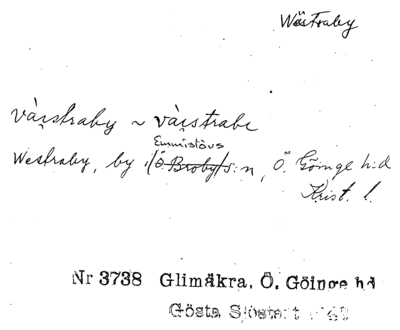 Wästraby
và̤rstraby ~ và̤rstrabe
Emmislövs
Westraby, by i /Ö Broby/ s:n, Ö. Göinge h:d
Krist. l.
Nr 3738 Glimåkra, Ö. Göinge hd
Gösta Sjöstedt